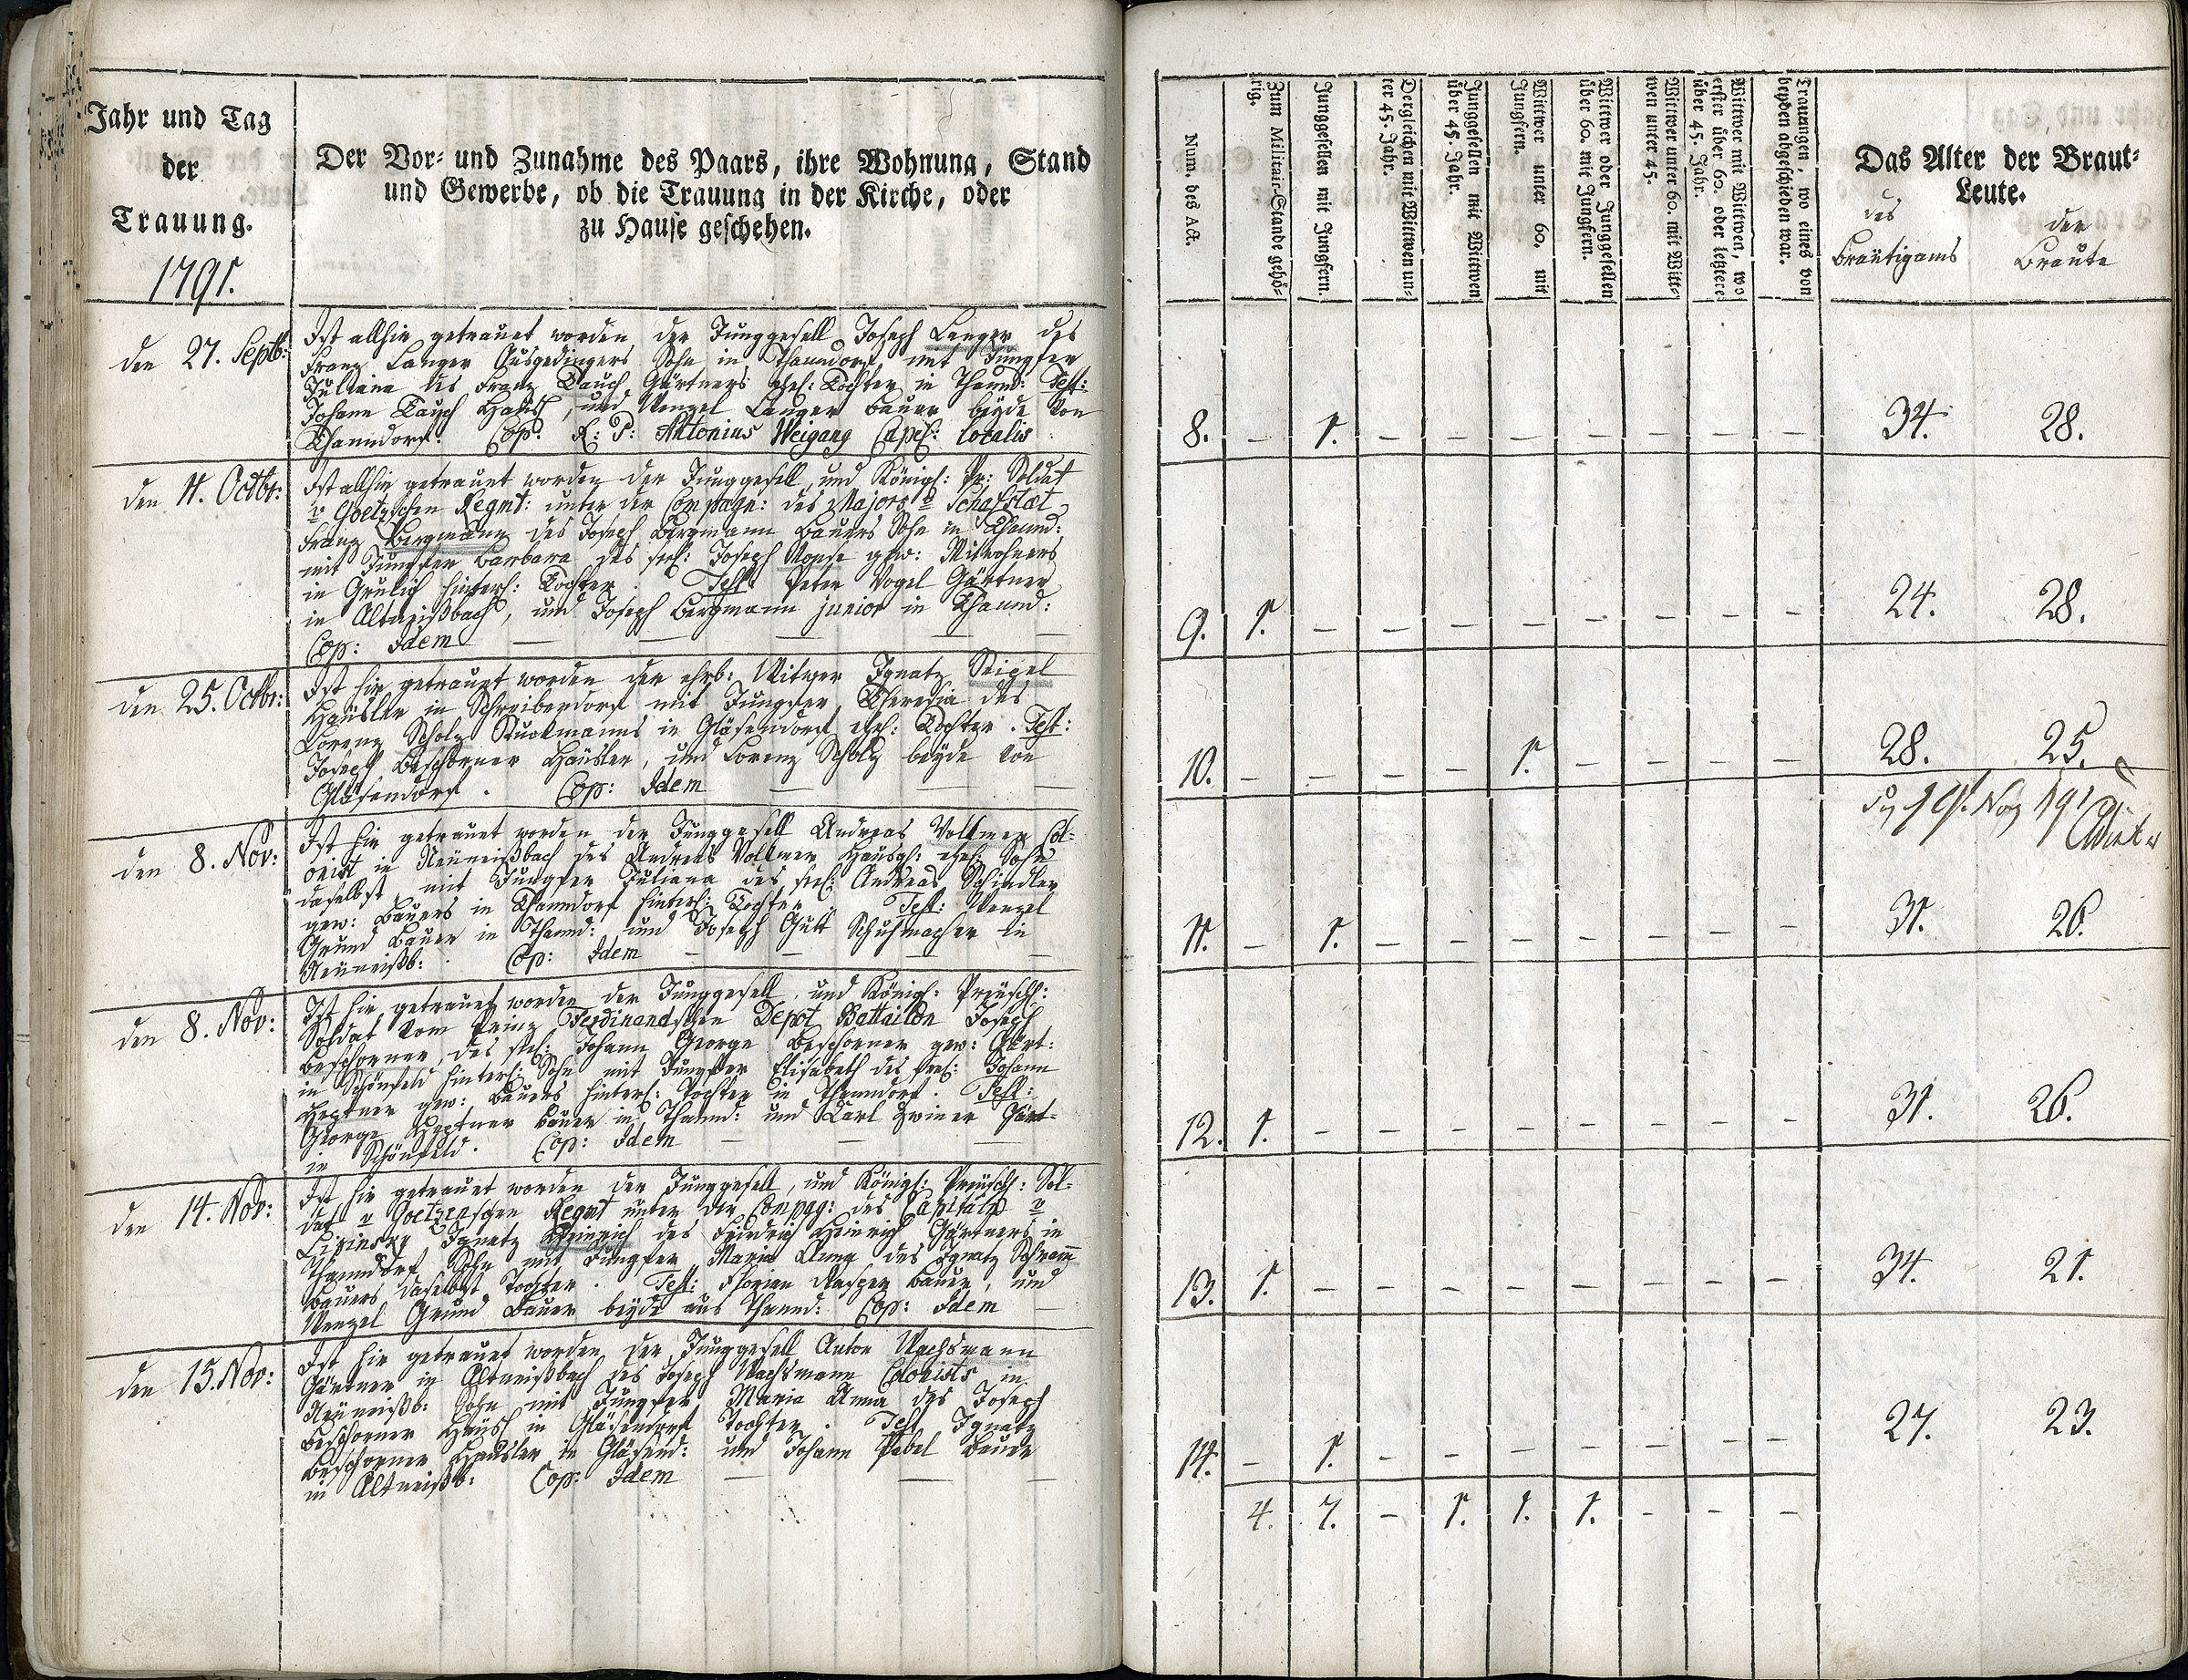 Jahr und Tag
der
Trauung.
1791.
Der Vor- und Zunahme des Paars, ihre Wohnung, Stand
und Gewerbe, ob die Trauung in der Kirche, oder
zu Hause geschehen.
den 27. Septb:
Ist allhie getrauet worden der Junggesell Joseph Langer des
Franz Langer Ausgedingers Sohn in Thanndorf mit Jungfer
Juliana des Franz Tauch Gärtners ehel: Tochter in Thannd: Test:
Johann Tauch Häusl, und Wenzel Langer Bauer beyde von
Thanndorf. Cop: R: P: Antonius Weigang Capel: localis
den 11. Octbr:
Ist allhie getrauet worden der Junggesell, und Königl: Pr: Soldat
v Goetzschen Regmt: unter der Compagn: des Majors v Schafstæt
Franz Bergmann des Joseph Bergmann Bauers Sohn in Thannd:
mit Jungfer Barbara des seel: Joseph gew: Mitwohners
in Grulich hinterl: Tochter. Test: Peter Vogel Gärtner
in Altneißbach, und Joseph Bergmann junior in Thannd:
Cop: Idem
den 25. Octbr:
Ist hie getrauet worden der ehrb: Witwer Ignatz Seipel
Häusler in Schreibendorf mit Jungfer Theresia des
Lorenz Scholz Stuckmanns in Gläsendorf ehel: Tochter. Test:
Joseph Beschorner Häusler, und Lorenz Scholz beyde von
Gläsendorf. Cop: Idem
den 8. Nov:
Ist hie getrauet worden der Junggesell Andreas Vollmer Col-
onist in Neuneißbach des Andreas Vollmer Häusgl: ehel: Sohn
daselbst mit Jungfer Juliana des seel: Andreas Schindler
gew: Bauers in Thanndorf hinterl: Tochter. Test: Wenzel
Grund Bauer in Thannd: und Joseph Gutt Schuhmacher in
Neuneißb: Cop: Idem
den 8. Nov:
Ist hie getrauet worden der Junggesell, und Königl: Preüschl:
Soldat vom Prinz Ferdinandschen Depot Battailon Joseph
Beschorner, des seel: Johann George Beschorner gew: Gärt:
in Schönfeld hinterl: Sohn mit Jungfer Elisabeth des seel: Johann
Heptner gew: Bauers hinterl: Tochter in Thanndorf. Test:
George Heptner Bauer in Thannd: und Carl Zwiner Gärt-
in Schönfeld. Cop: Idem
den 14. Nov:
Ist hie getrauet worden der Junggesell, und Königl: Preüschl: Sol-
dat v Goetzenschen Regmt unter der Compag: des Capitain v
Lipinsky Ignatz Heinrich des Friedrich Heinrich Gärtners in
Thanndorf Sohn mit Jungfer Maria Anna des Ignatz Schram̄
Bauers daselbst Tochter. Test: Florian Bauer, und
Wenzel Grund Bauer beyde aus Thannd: Cop: Idem
den 15. Nov:
Ist hie getrauet worden der Junggesell Anton Wachsmann
Gärtner in Altneißbach des Joseph Wachsmann Colonists in
Neüneißb: Sohn mit Jungfer Maria Anna des Joseph
Beschorner Häusl in Gläsendorf Tochter. Test Ignatz
Beschorner Häusler in Gläsend: und Johann Pabel Bauer
in Altneißb: Cop: Idem
Num. des Act.
Zum Militair-Stande gehö-
rig.
Junggesellen mit Jungfern.
Dergleichen mit Wittwen un-
ter 45. Jahr.
Junggesellen mit Wittwen
über 45. Jahr.
Wittwer unter 60. mit
Jungfern.
Wittwer oder Junggesellen
über 60. mit Jungfern.
Wittwer unter 60. mit Witt-
wen unter 45.
Wittwer mit Wittwen, wo
erster über 60. oder letztere
über 45. Jahr.
Trauungen, wo eines von
beyden abgeschieden war.
Das Alter der Braut-
Leute.
des
Bräutigams
der
Braute
8. – 1. – – – – – – – 34. 28.
9. 1. – – – – – – – – 24. 28.
10. – – – – 1. – – – – 28. 25.
11. – 1. – – – – – – – 31. 26.
12. 1. – – – – – – – – 31. 26.
13. 1. – – – – – – – – 34. 21.
14. – 1. – – – – – – – 27. 23.
4. 7. – 1. 1. 1. – – –